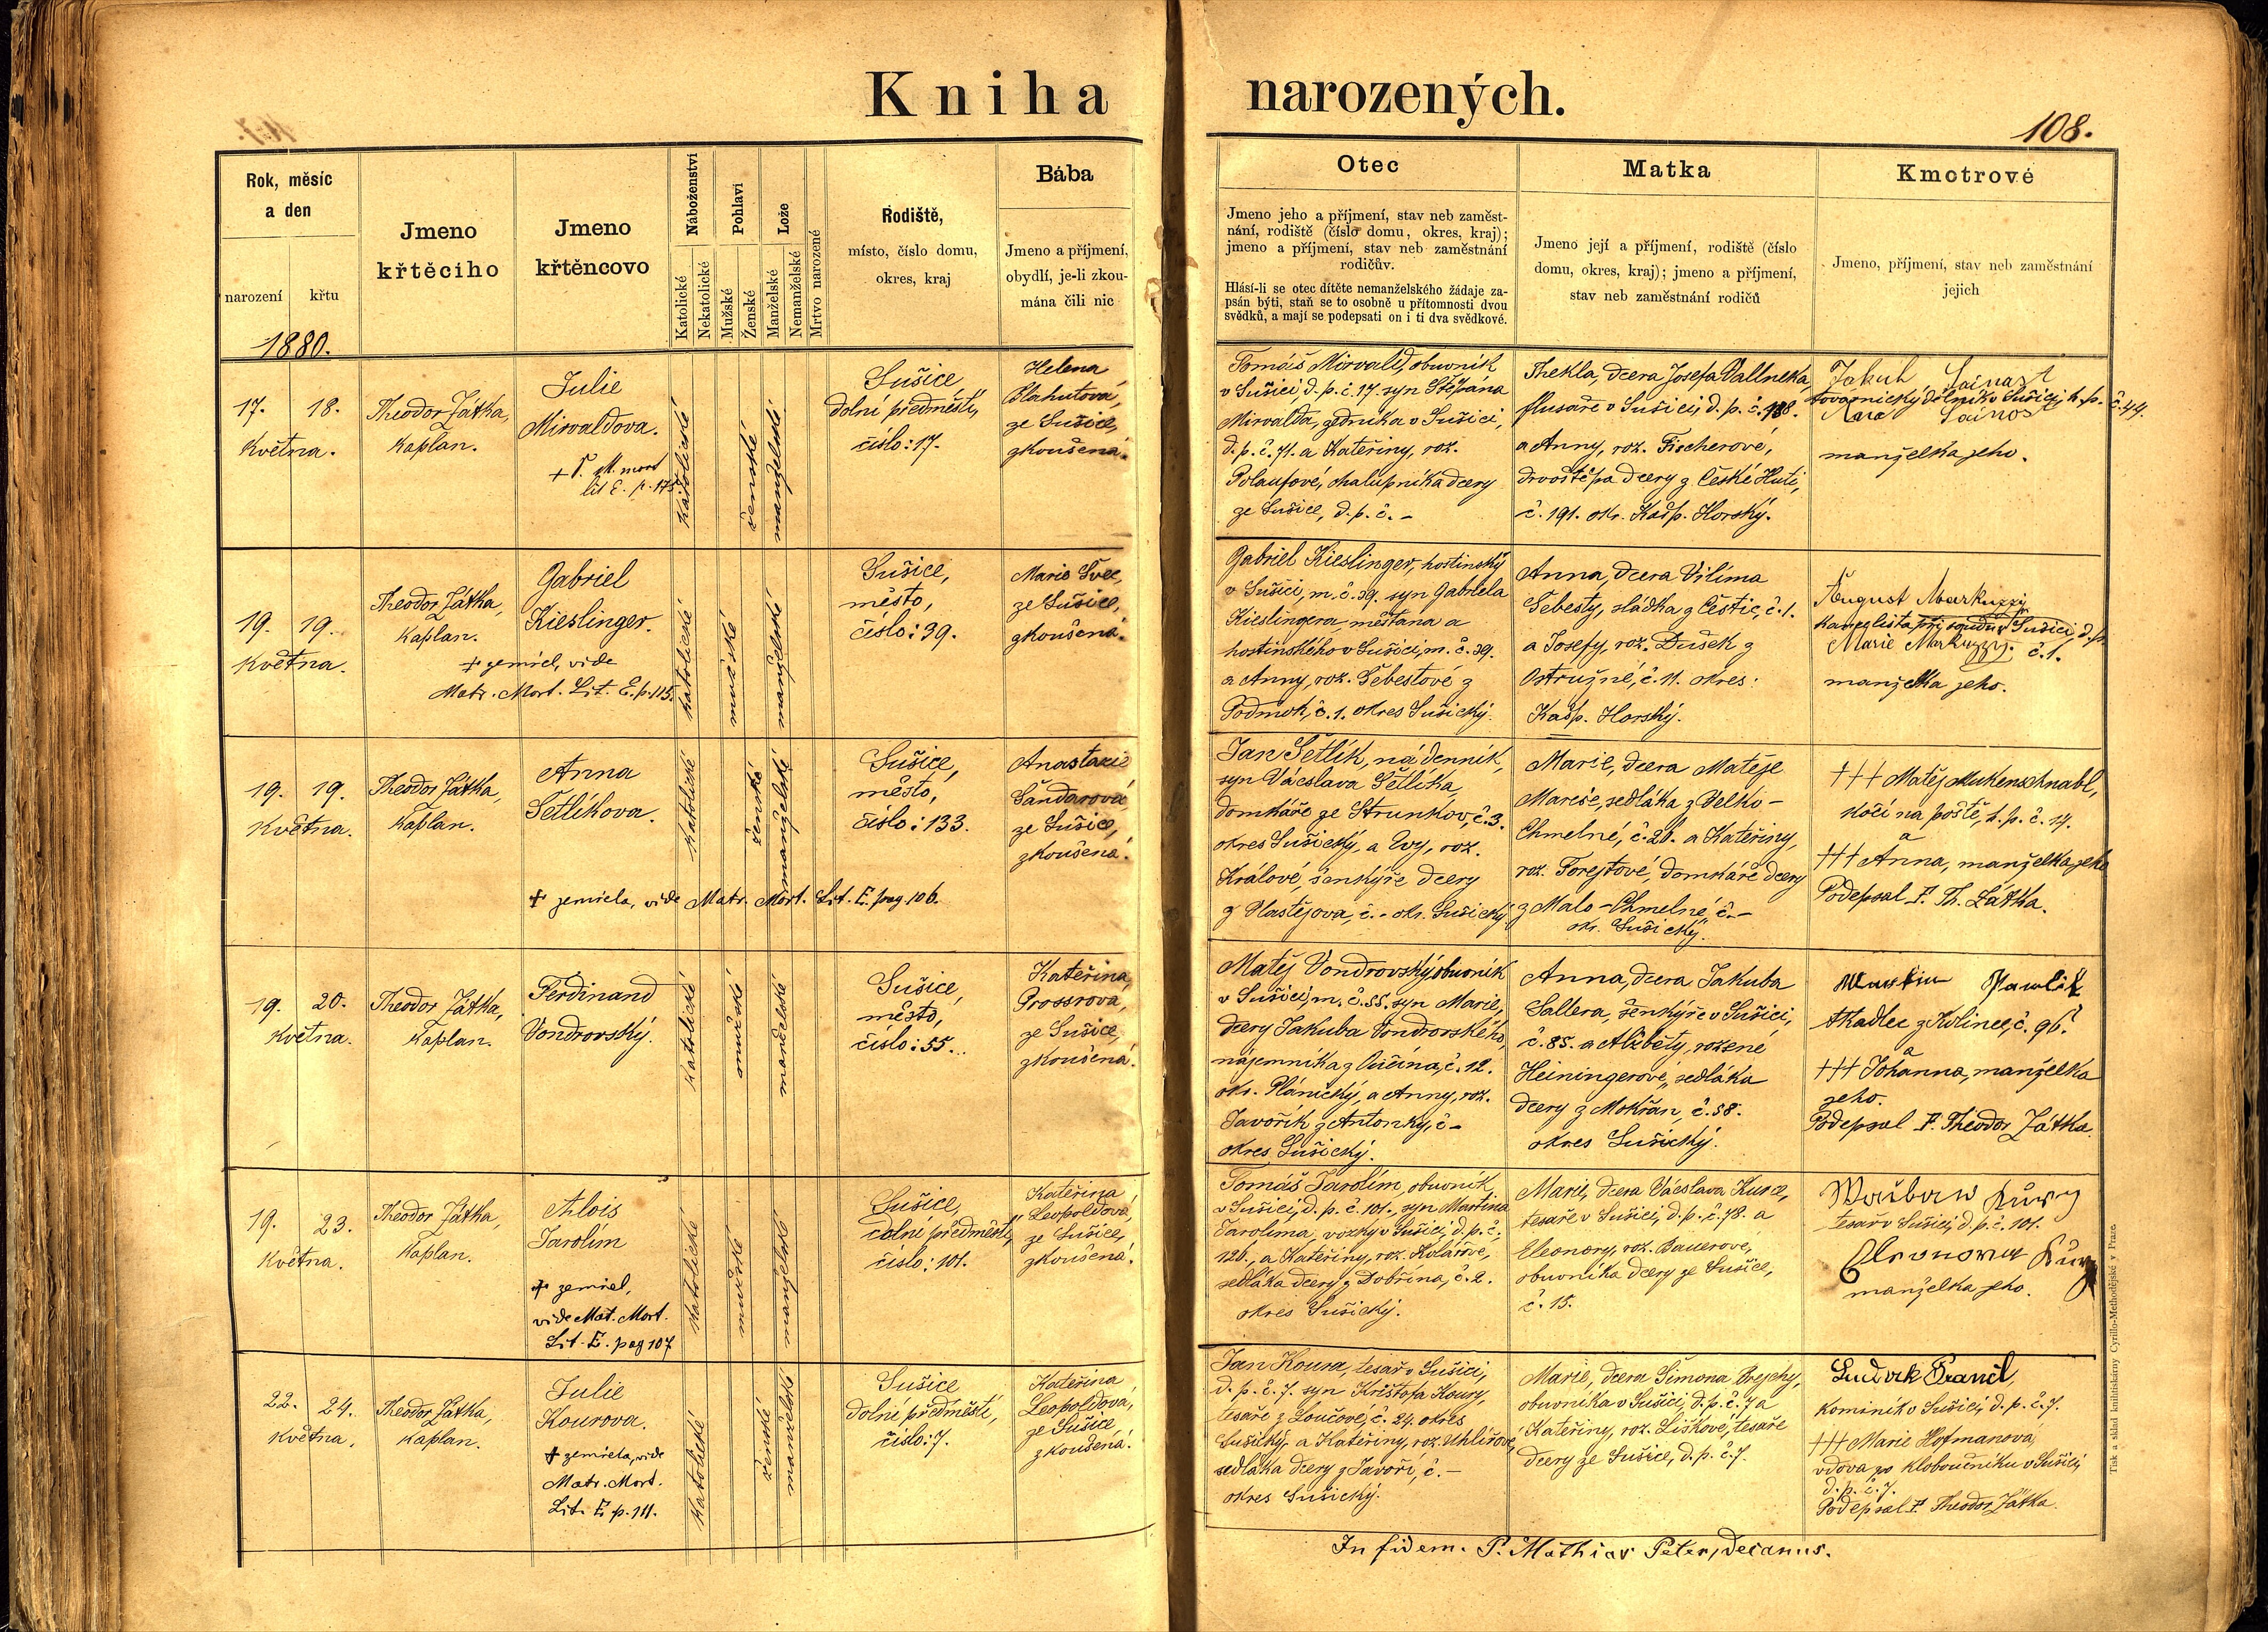 Kniha narozených.
108.
Rok, měsíc
a den
narození
křtu
1880.
Jmeno
křtěcího
Jmeno
křtěncovo
Náboženství
Katolické
Nekatolické
Pohlaví
Mužské
Ženské
Lože
Manželské
Nemanželské
Mrtvo narozené
Rodiště,
místo, číslo domu,
okres, kraj
Bába
Jmeno a příjmení,
obydlí, je-li zkou-
mána čili nic
Otec
Jmeno jeho a příjmení, stav neb zaměst-
nání, rodiště (číslo domu, okres, kraj);
jmeno a příjmení, stav neb zaměstnání
rodičův.
Hlásí-li se otec dítěte nemanželského žádaje za-
psán býti, staň se to osobně u přítomnosti dvou
svědků, a mají se podepsati on i ti dva svědkové.
Matka
Jmeno její a příjmení, rodiště (číslo
domu, okres, kraj); jmeno a příjmení,
stav neb zaměstnání rodičů
Kmotrové
Jmeno, příjmení, stav neb zaměstnání
jejich
17. 18.
května.
Theodor Zátka,
kaplan.
Julie
Mirvaldova.
lit E. p. 175
katolické
ženské
manželské
Sušice
dolní předměstí,
číslo: 17.
Helena
Blahutová,
ze Sušice,
zkoušená.
Tomáš Mirvald, obuvník
v Sušici, d. p. č. 17. syn Štěpána
Mirvalda, zedníka v Sušici,
d. p. č. 71. a Kateřiny, roz.
Polaufové, chalupníka dcery
ze Sušice, d. p. č. –
Thekla, dcera Josefa
flusaře v Sušici, d. p. č. 188.
a Anny, roz. Fischerové,
drvoštěpa dcery z České Huti,
č. 191. okr. Kašp. Horský.
Jakub
tovarnický dělník v Sušici, h. p. č. 44.
manželka jeho.
19. 19.
května.
Theodor Zátka,
kaplan.
Gabriel
Kieslinger.
+ zemřel, vide
Matr. Mort. Lit. E. p. 115.
katolické
mužské
manželské
Sušice,
město,
číslo: 39.
Marie Švec,
ze Sušice,
zkoušená.
Gabriel Kieslinger, hostinský
v Sušici, m. č. 39. syn Gabriela
Kieslingera, měšťana a
hostinského v Sušici, m. č. 39.
a Anny, roz. Šebestové z
Podmok, č. 1. okres Sušický.
Anna, dcera Vilíma
Šebesty, sládka z Čestic, č. 1.
a Josefy, roz. Dušek z
Ostružné, č. 11. okres:
Kašp. Horský.
August Markuzzy.
kanzelista při soudu v Sušici, d. p.
Marie Markuzzy. č. 1.
manželka jeho.
19. 19.
května.
Theodor Zátka,
kaplan.
Anna
Šetlíkova.
+ zemřela, vide Matr. Mort. Lit. E. pag 106.
katolické
ženské
manželské
Sušice,
město,
číslo: 133.
Anastazie
Šandarová,
ze Sušice,
zkoušená.
Jan Šetlík, nádenník,
syn Václava Šetlíka,
domkáře ze Strunkov, č. 3.
okres Sušický, a Evy, roz.
Králové, šenkýře dcery
z Vlastějova, č. – okr. Sušický.
Marie, dcera Matěje
Mareše, sedláka z Velko-
Chmelné, č. 20. a Kateřiny,
roz. Forejtové, domkáře dcery
z Malo-Chmelné, č. –
okr. Sušický.
††† Matěj Mukenschnabl,
kočí na poště, h. p. č. 14.
a
††† Anna, manželka jeho
Podepsal P. Th. Zátka.
19. 20.
května.
Theodor Zátka,
kaplan.
Ferdinand
Vondrovský.
katolické
mužské
manželské
Sušice,
město,
číslo: 55.
Kateřina
Prossrová,
ze Sušice,
zkoušená.
Matěj Vondrovský, obuvník
v Sušici, m. č. 55. syn Marie,
dcery Jakuba Vondrovského,
nájemníka z Lučína, č. 12.
okr. Plánický, a Anny, roz.
Javořík z Antonky, č –
okres Sušický.
Anna, dcera Jakuba
Sallera, šenkýře v Sušici,
č. 85. a Alžběty, rozené
Heiningerové, sedláka
dcery z Mokřan, č. 58.
okres Sušický.
Martin Pawlik
tkadlec z Kolince, č. 96.
a
††† Johanna, manželka
jeho.
Podepsal P. Theodor Zátka.
19. 23.
května.
Theodor Zátka,
kaplan.
Alois
Jarolím
+ zemřel,
vide Mat. Mort.
Lit. E. pag 107
katolické
mužské
manželské
Sušice,
dolní předměstí,
číslo: 101.
Kateřina
Leopoldová,
ze Sušice,
zkoušená.
Tomáš Jarolím, obuvník
v Sušici, d. p. č. 101., syn Martina
Jarolíma, vozky v Sušici, d. p. č.
126., a Kateřiny, roz. Kolářové,
sedláka dcery z Dobřína, č. 2.
okres Sušický.
Marie, dcera Václava Kurce,
tesaře v Sušici, d. p. č. 78. a
Eleonory, roz. Bauerové,
obuvníka dcery ze Sušice,
č. 15.
tesař v Sušici, d. p. č. 101.
manželka jeho.
22. 24.
května.
Theodor Zátka,
kaplan.
Julie
Kourova.
+ zemřela, vide
Matr. Mort.
Lit. E p. 111.
katolické
ženské
manželské
Sušice
dolní předměstí,
číslo: 7.
Kateřina
Leopoldová,
ze Sušice
zkoušená.
Jan Koura, tesař v Sušici,
d. p. č. 7. syn Krištofa Koury,
tesaře z Loučové, č. 24. okres
Sušický. a Kateřiny, roz. Uhlířové,
sedláka dcery z Javoří, č. –
okres Sušický.
Marie, dcera Šimona Brejchy,
obuvníka v Sušici, d. p. č. 7 a
Kateřiny, roz. Liškové, tesaře
dcery ze Sušice, d. p. č. 7.
kominík v Sušici, d. p. č. 7.
††† Marie Hofmanova,
vdova po kloboučníku v Sušici,
d. p. č. 7.
Podepsal P. Theodor Zátka.
In fidem. P. Mathias Peter, decanus.
Tisk a sklad knihtiskárny Cyrillo-Methodějské v Praze.